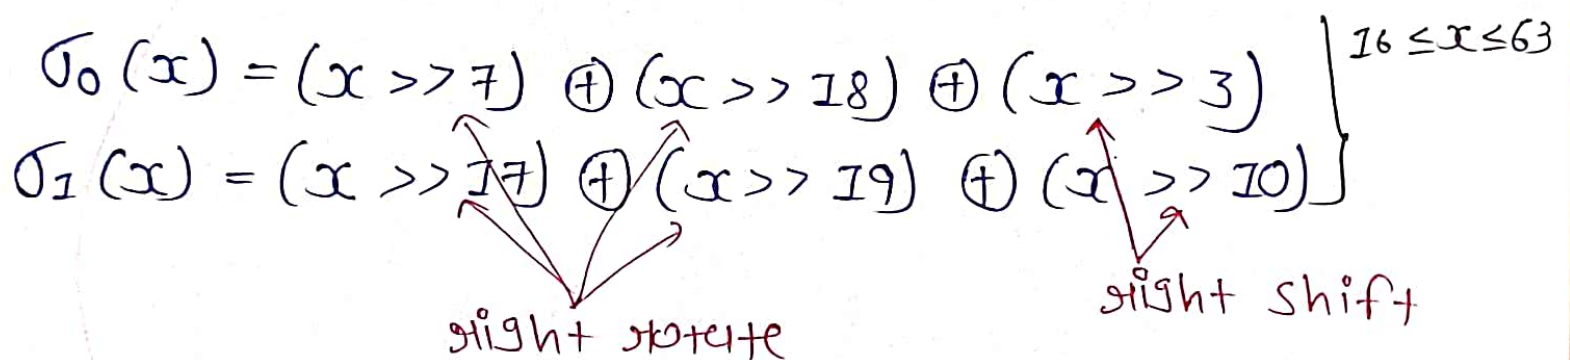 σ₀(x) = (x >> 7) ⊕ (x >> 18) ⊕ (x >> 3)
σ₁(x) = (x >> 17) ⊕ (x >> 19) ⊕ (x >> 10)
16 ≤ x ≤ 63
right rotate
right shift